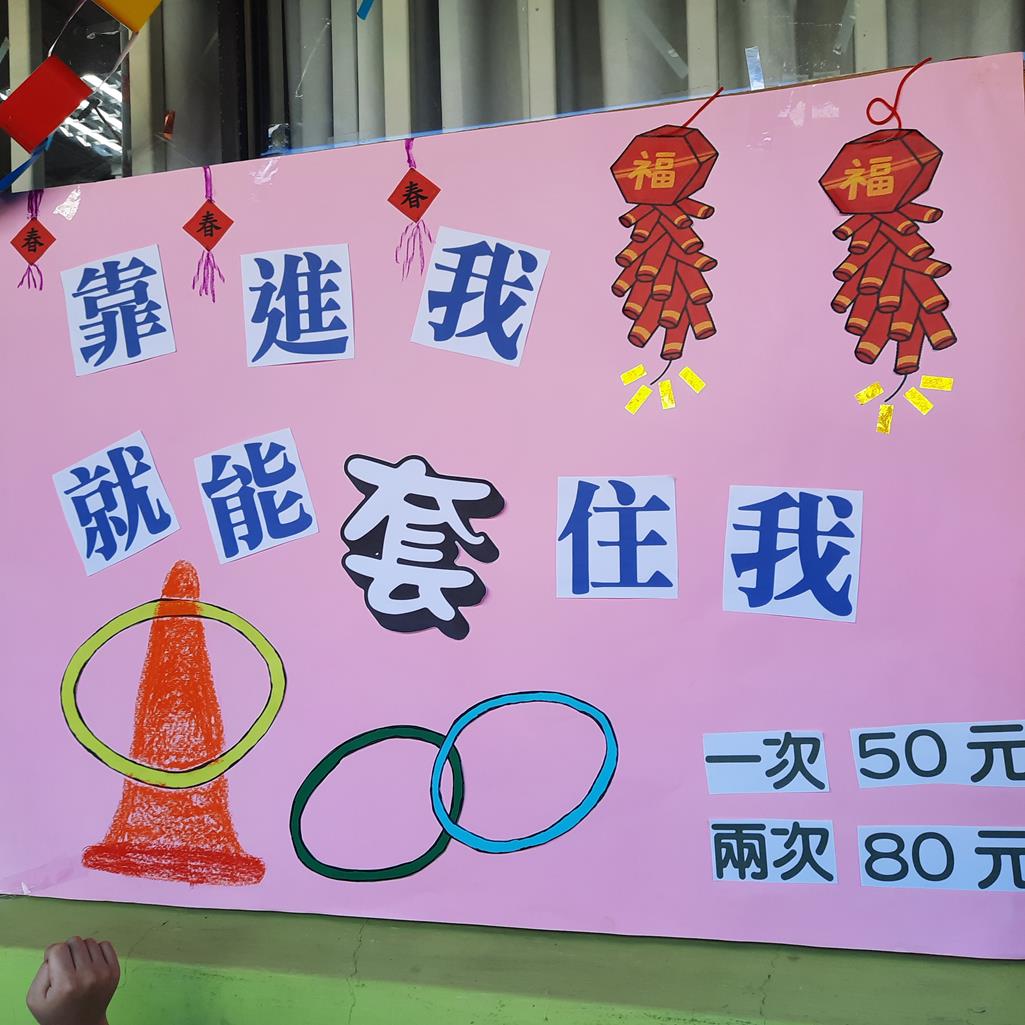 福 福
春 春 春
靠進我
就能套住我
一次 50元
兩次 80元